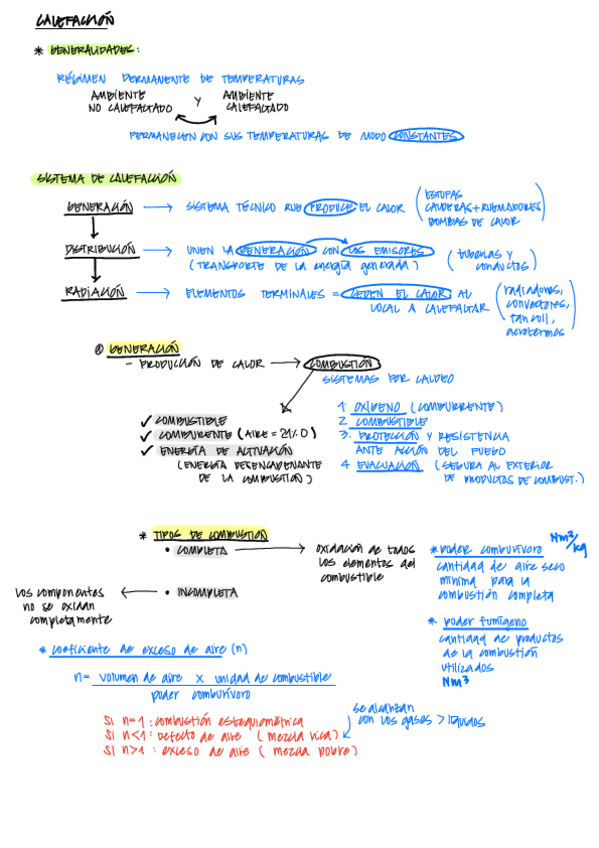 CALEFACCIÓN
* GENERALIDADES:
RÉGIMEN PERMANENTE DE TEMPERATURAS
AMBIENTE NO CALEFACTADO Y AMBIENTE CALEFACTADO
PERMANECEN CON SUS TEMPERATURAS DE MODO CONSTANTES
SISTEMA DE CALEFACCIÓN
GENERACIÓN → SISTEMA TÉCNICO QUE PRODUCE EL CALOR (ESTUFAS
CALDERAS + QUEMADORES
BOMBAS DE CALOR)
DISTRIBUCIÓN → UNEN LA GENERACIÓN CON LOS EMISORES (tuberías y
(TRANSPORTE DE LA energía generada) conductos)
RADIACIÓN → ELEMENTOS TERMINALES = CEDEN EL CALOR AL
LOCAL A CALEFACTAR
(radiadores,
convectores,
fan coil,
aerotermos)
GENERACIÓN
- PRODUCCIÓN DE CALOR → COMBUSTIÓN
SISTEMAS POR CALDEO
✓ COMBUSTIBLE
✓ COMBURENTE (AIRE = 21% O)
✓ ENERGÍA DE ACTIVACIÓN
(ENERGÍA DESENCADENANTE
DE LA COMBUSTIÓN)
1 OXÍGENO (COMBURRENTE)
2 COMBUSTIBLE
3. PROTECCIÓN Y RESISTENCIA
ANTE ACCIÓN DEL FUEGO
4 EVACUACIÓN (SEGURA AL EXTERIOR
DE PRODUCTOS DE COMBUST.)
* TIPOS DE COMBUSTIÓN
• COMPLETA → oxidación de todos
los elementos del
combustible
• INCOMPLETA → Los componentes
no se oxidan
completamente
* poder comburívoro Nm³/kg
cantidad de aire seco
mínima para la
combustión completa
* poder fumígeno
cantidad de productos
de la combustión
utilizados
Nm³
* coeficiente de exceso de aire (n)
n = volumen de aire x unidad de combustible
poder comburívoro
Si n=1 : combustión estequiométrica
Si n<1 : defecto de aire (mezcla rica)
Si n>1 : exceso de aire (mezcla pobre)
se alcanzan
con los gases > líquidos